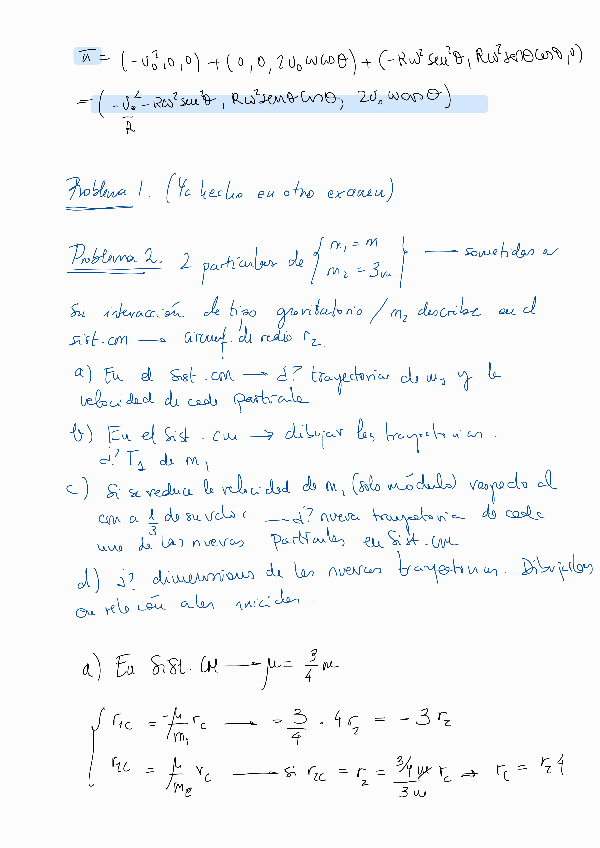 a̅ = (-v₀², 0, 0) + (0, 0, 2v₀ω cosθ) + (-Rω² sen²θ, Rω² senθ cosθ, 0)
= (-v₀²/R - Rω² sen²θ, Rω² senθ cosθ, 2v₀ω cosθ)
Problema 1. (Ya hecho en otro examen)
Problema 2. 2 partículas de { m₁ = m
m₂ = 3m } — sometidas a
su interacción de tipo gravitatorio / m₂ describe en el
sist. CM → circunf. de radio r₂.
a) En el sist. CM → ¿? trayectorias de m₁ y la
velocidad de cada partícula
b) En el sist. CM → dibujar las trayectorias.
¿? T₁ de m₁
c) Si se reduce la velocidad de m₁ (solo módulo) respecto al
CM a 1/3 de su valor → ¿? nueva trayectoria de cada
una de las nuevas partículas en sist. CM
d) ¿? dimensiones de las nuevas trayectorias. Dibujadas
en relación a las iniciales.
a) En Sist. CM → μ = 3/4 m
{ r₁c = -μ/m₁ r_c → -3/4 · 4r₂ = -3r₂
r₂c = μ/m₂ r_c → si r₂c = r₂ = (3/4 m)/(3m) r_c ⇒ r_c = r₂ 4